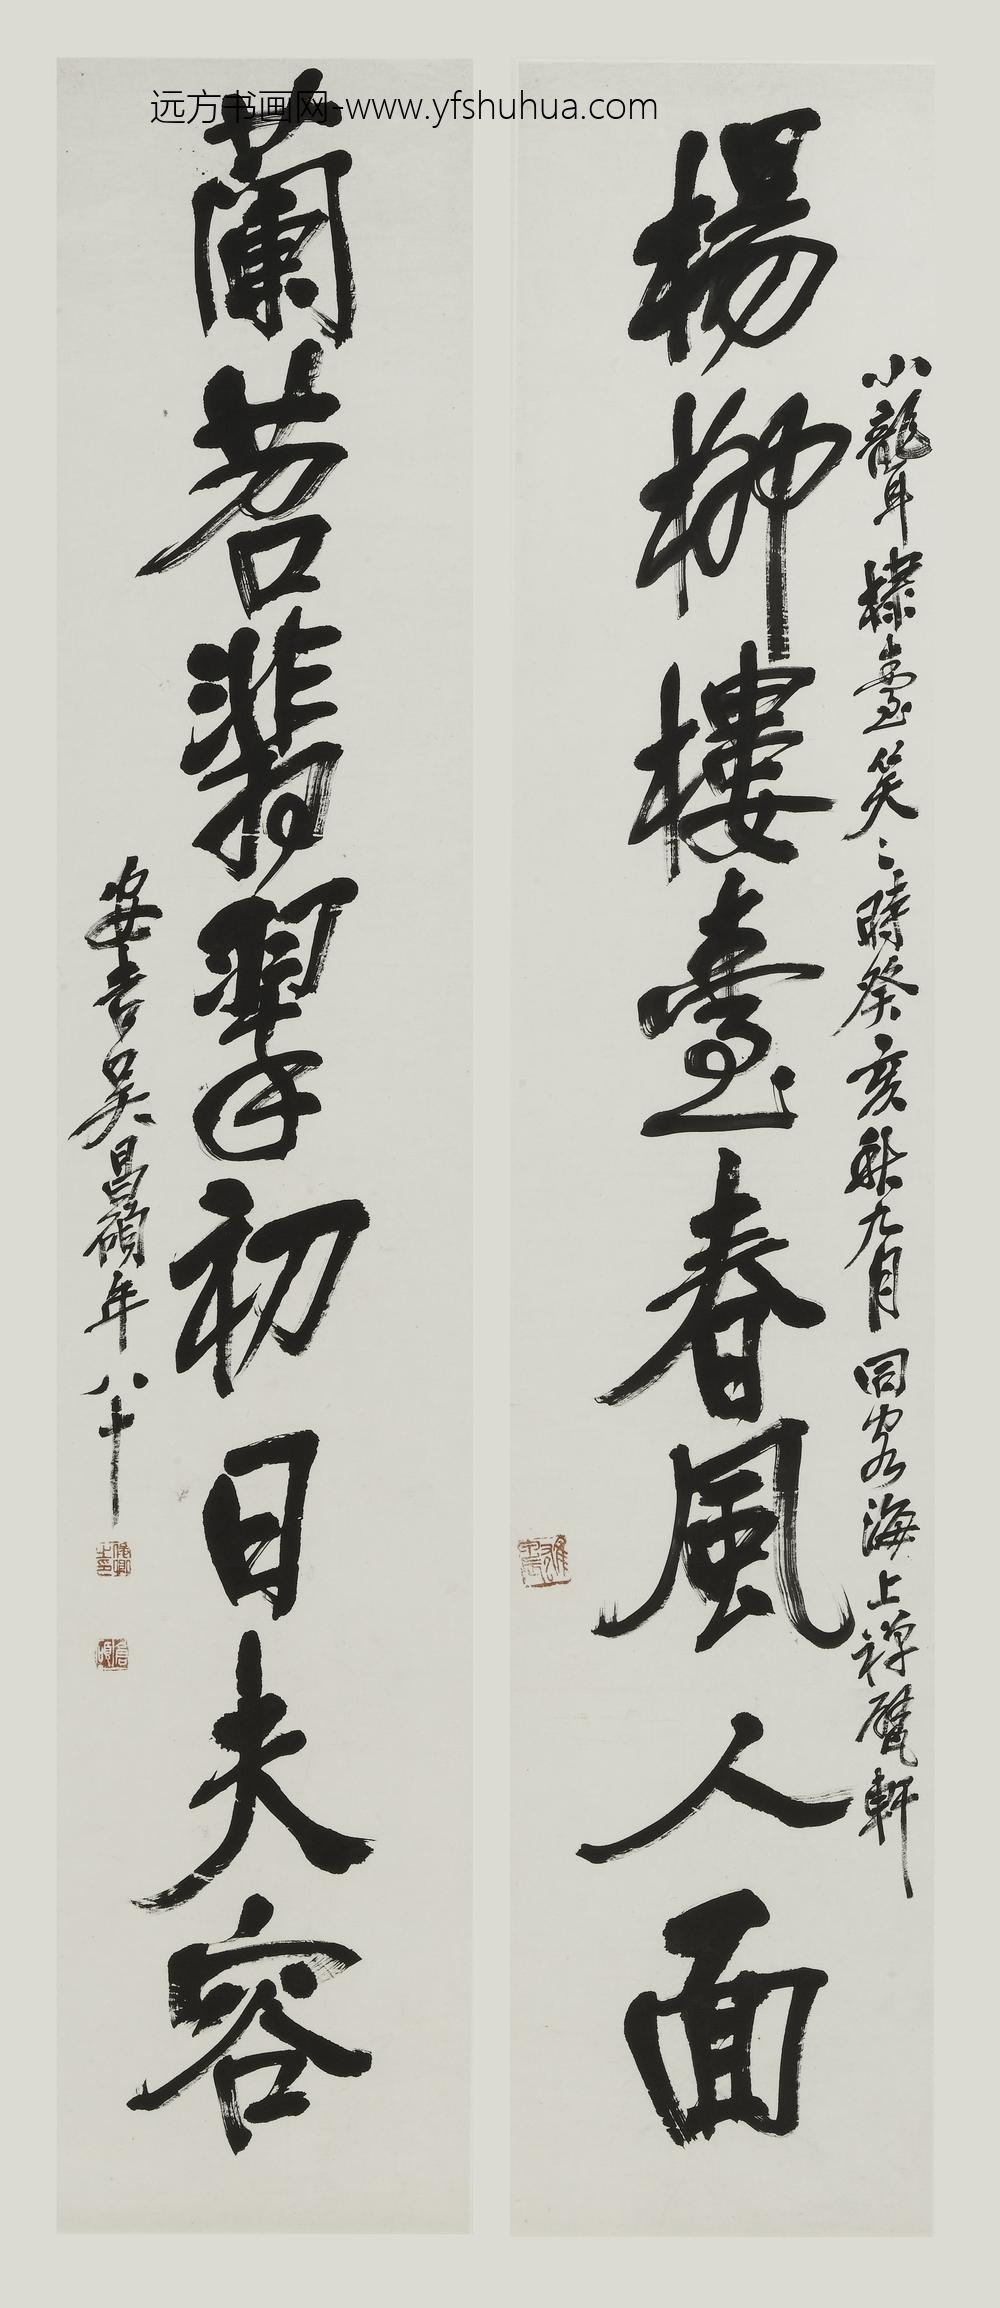 远方书画网-www.yfshuhua.com
小聾年棣臺笑之時癸亥秋九月同客海上禪甓軒
楊柳樓臺春風人面
蘭苕翡翠初日夫容
安吉吳昌碩年八十